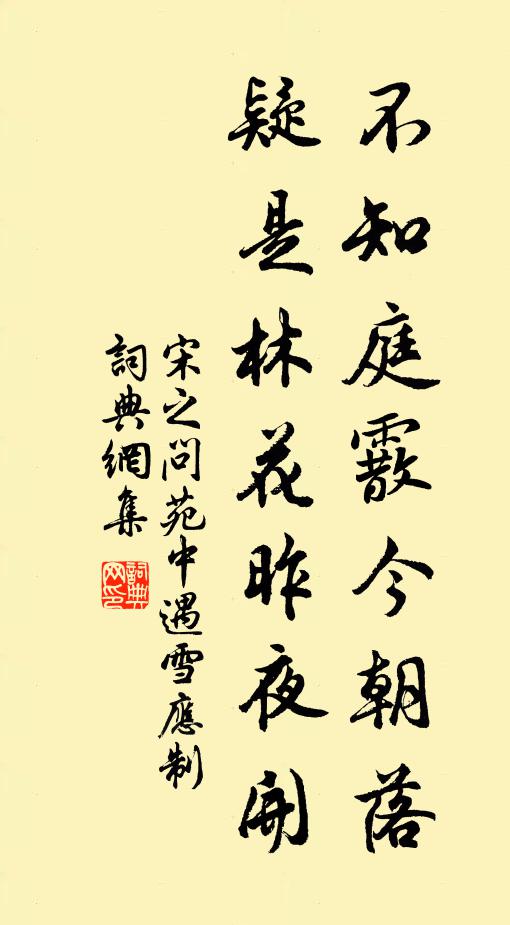 不知庭霰今朝落
疑是林花昨夜開
宋之问苑中遇雪應制
詞典網集
詞典网印